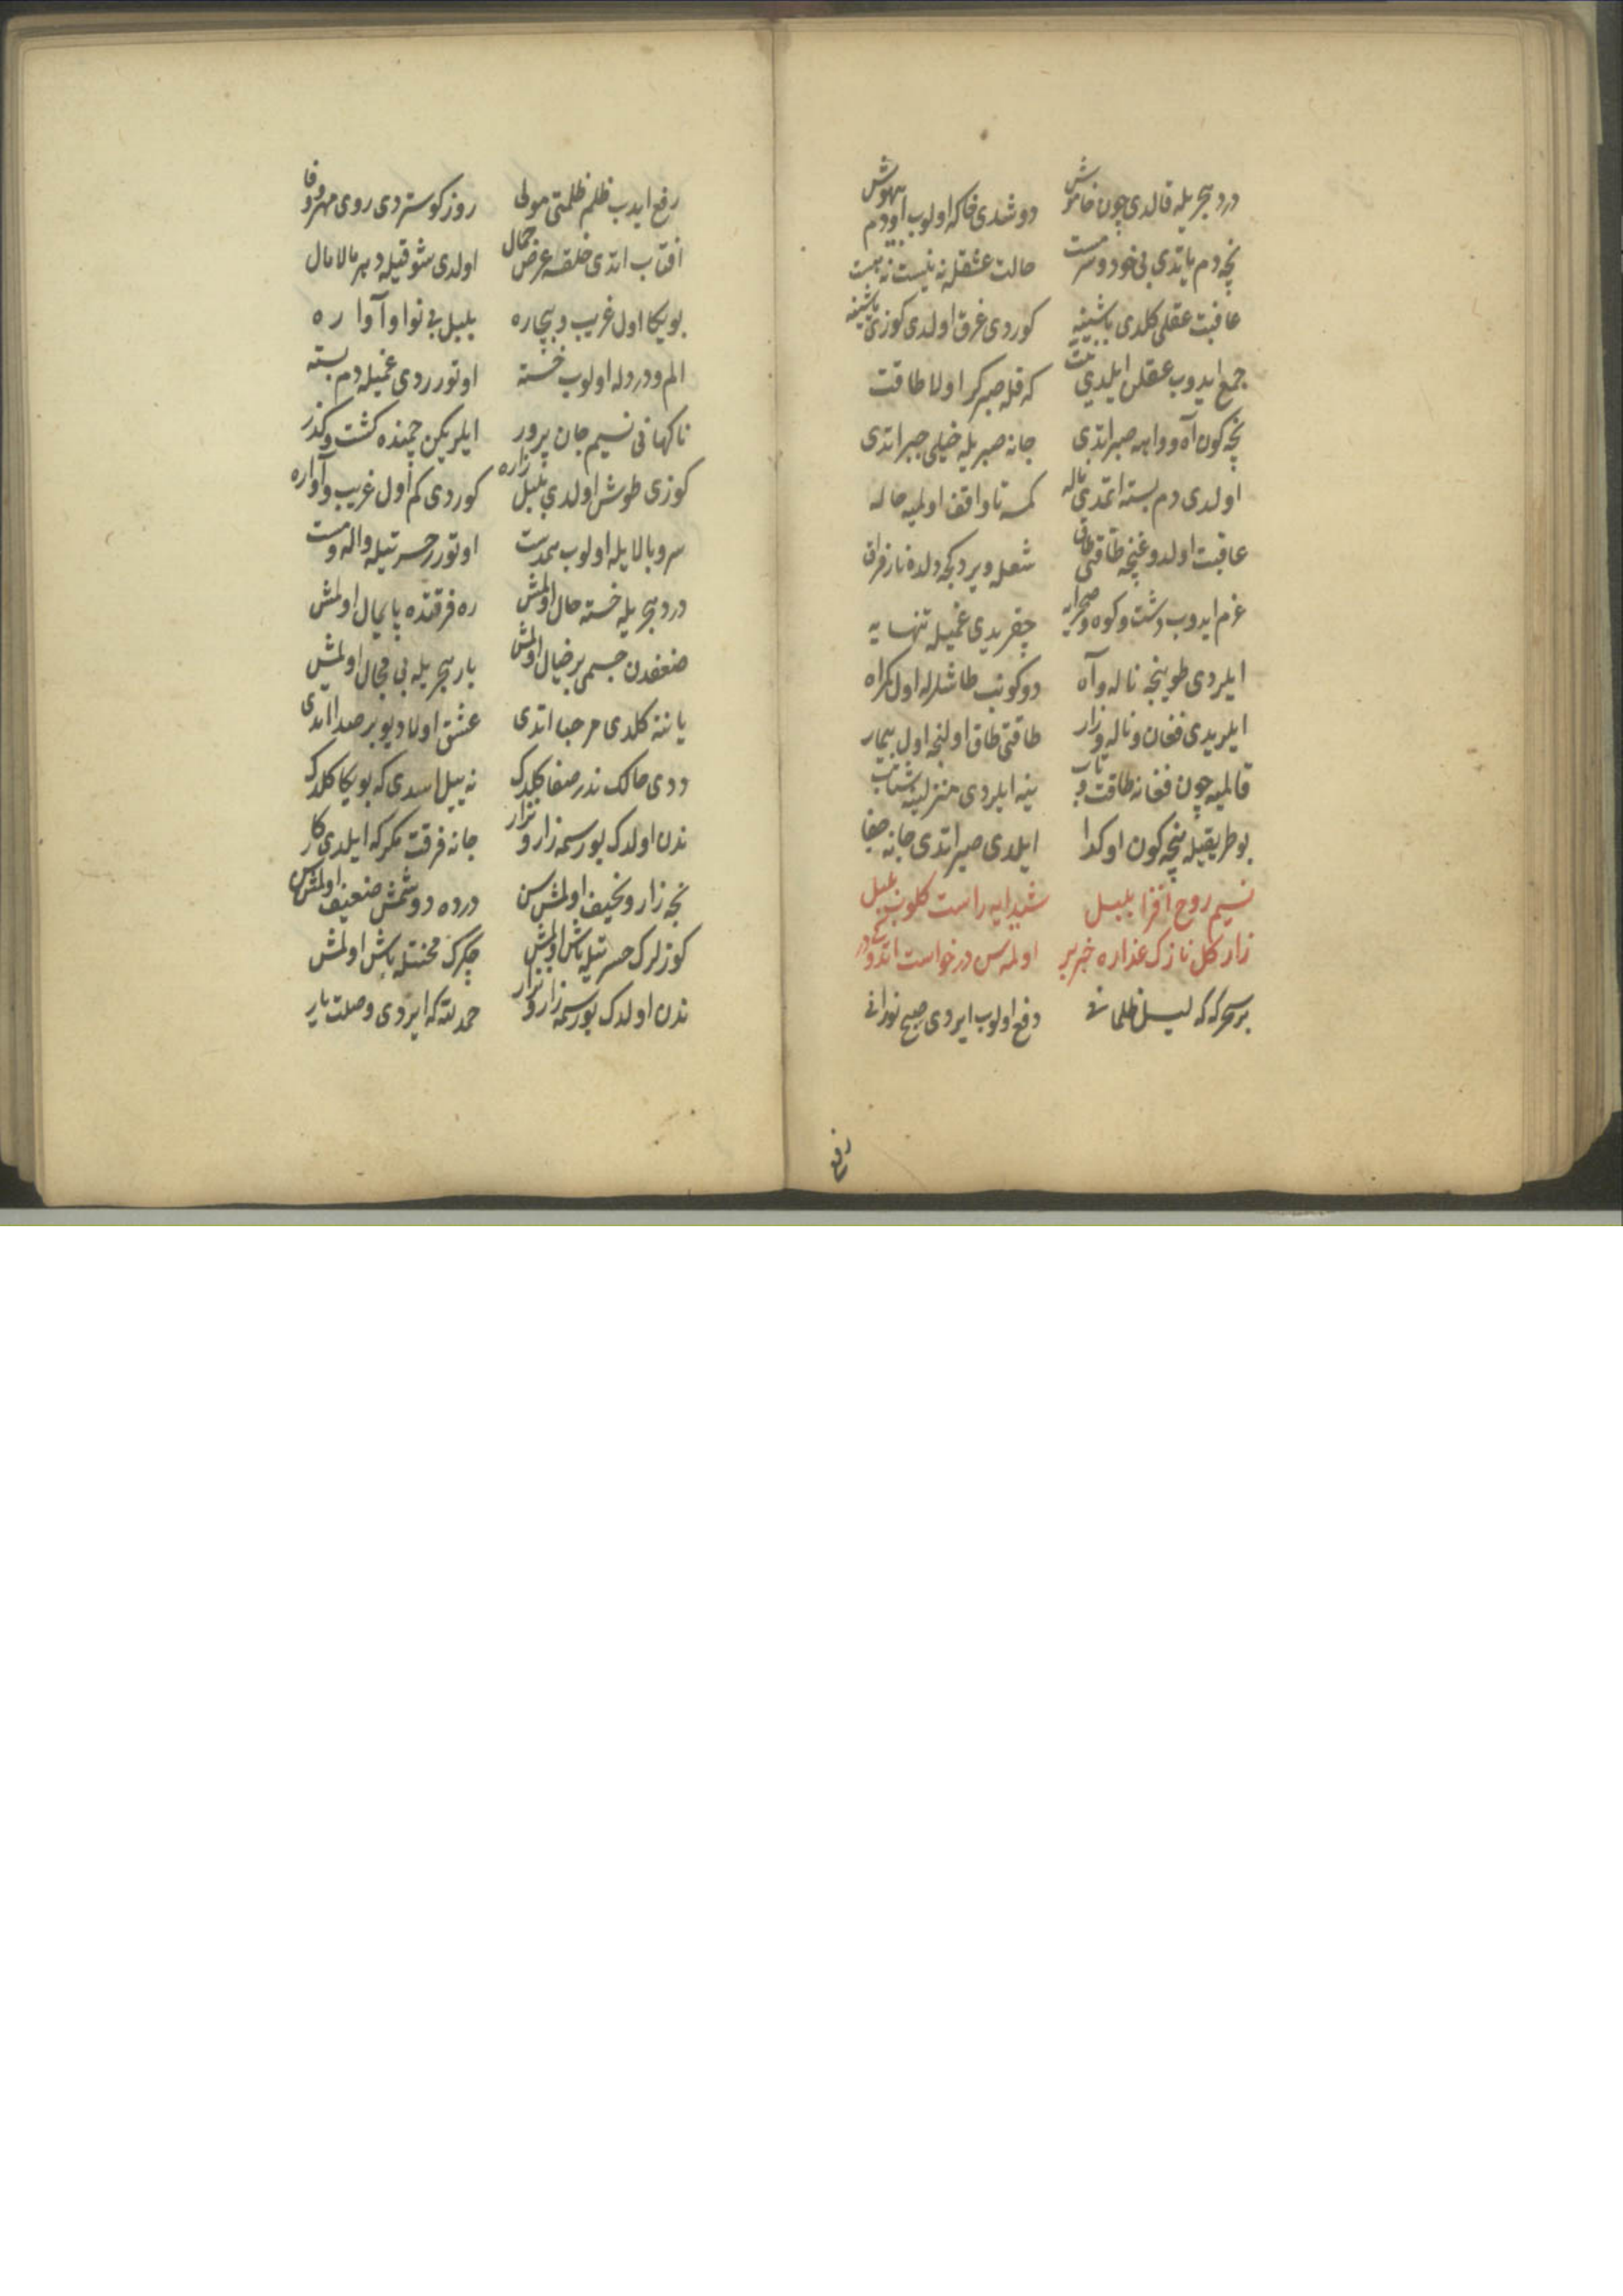 درد هجریله قالدی چون خاموش دوشدی خاکه اولوب اودم بیهوش
نچه دم یاتدی بی خود و سرمست حالت عشقله نه نیست نه هست
عاقبت عقلی کلدی باشینه کوردی غرق اولدی کوزی یاشینه
جمع ایدوب عقلن ایلدی نیت که قله صبر کر اولا طاقت
نچه کون آه و واهه صبر اتدی جانه صبریله خیلی جبر اتدی
اولدی دم بسته اتمدی ناله کمسه تا واقف اولمیه حاله
عاقبت اولدوغنچه طاقتی طاق شعله ویردکجه دلده نار فراق
عزم ایدوب دشت و کوه و صحرایه چقریدی غمیله تنهایه
ایلردی طوینجه ناله و آه دوکونب طاشلرله اول کمراه
ایلریدی فغان و ناله و زار طاقتی طاق اولنجه اول بیمار
قالمیه چون فغانه طاقت و تاب ینه ایلردی منزلینه شتاب
بو طریقیله نچه کون او کدا ایلدی صبر اتدی جانه جفا
نسیم روح افزا بلبل شیدایه راست کلوب بلبل
زار کل نازک عذاره خبر بر اولمه‌سن درخواست اتدوکیدر
بر سحرکه که لیل ظلمانی دفع اولوب ایردی صبح نورانی
رفع
رفع ایدب ظلم ظلمتی مولی روز کوستردی روی مهر و وفا
افتاب اتدی خلقه عرض جمال اولدی شوقیله دهر مالامال
بویکا اول غریب و بیچاره بلبل بی نوا و آواره
الم و دردله اولوب خسته اوتوردی غمیله دم بسته
ناکهانی نسیم جان پرور ایلریکن چمنده کشت و کذر
کوزی طوش اولدی بلبل زاره کوردی کم اول غریب و آواره
سرو بالایله اولوب همدست اوتورر حسرتیله واله و مست
درد هجریله خسته حال اولمش ره فرقتده پایمال اولمش
ضعفدن جسمی بر خیال اولمش بار هجریله بی مجال اولمش
یاننه کلدی مرحبا اتدی عشق اولا دیو بر صدا اتدی
ددی حالک ندر صفا کلدک نه ییل اسدی که بویکا کلدک
ندن اولدک بورسمه زار و نزار جانه فرقت مکر که ایلدی کار
نجه زار و نحیف اولمش سن درده دوشمش ضعیف اولمش سن
کوزلرک حسرتیله یاش اولمش جکرک محنتله باش اولمش
ندن اولدک بورسمه زار و نزار حمد لله که ایردی وصلت یار